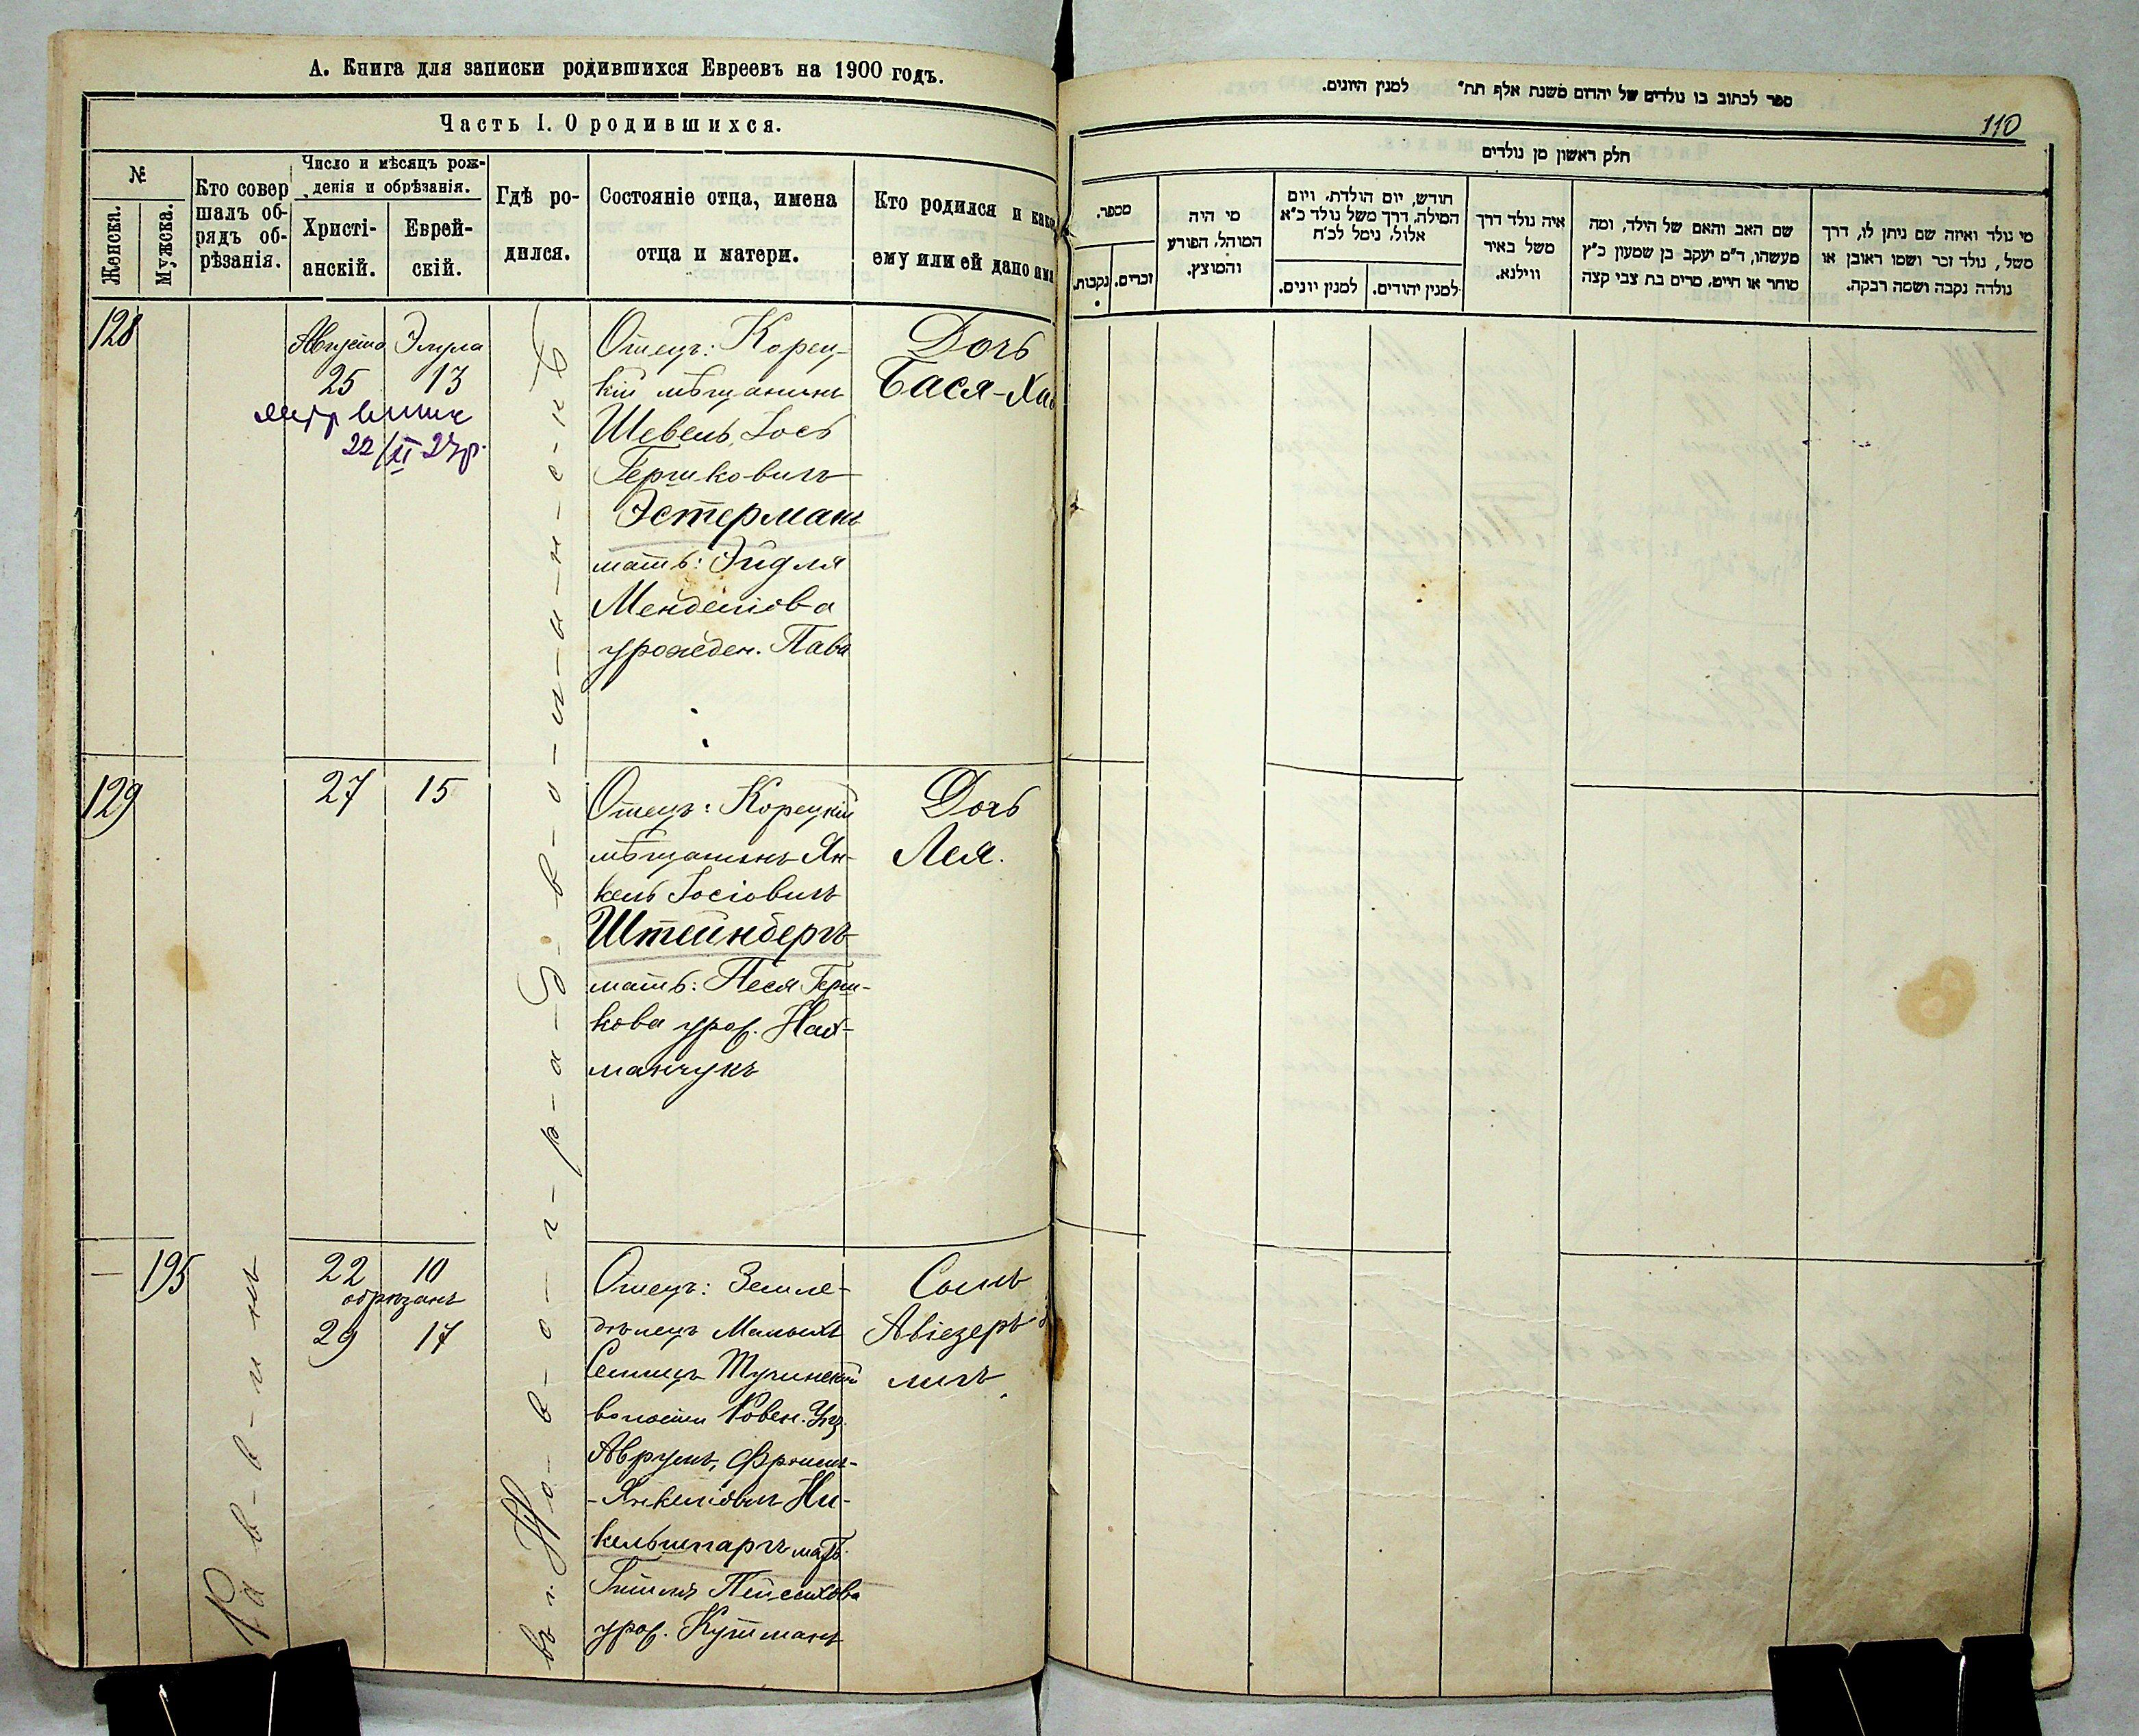 А. Книга для записки родившихся Евреевъ на 1900 годъ.
Часть I. О родившихся.
№
Женска.
Мужска.
Кто совер
шалъ об-
рядъ об-
рѣзанія.
Число и мѣсяцъ рож-
денія и обрѣзанія.
Христі-
анскій.
Еврей-
скій.
Гдѣ ро-
дился.
Состояніе отца, имена
отца и матери.
Кто родился и како
ему или ей дано имя
128
Августа
25
Элула
13
22/II 27р.
Отецъ: Корец-
кій мѣщанинъ
Шевель, Іось
Гершковичъ
Эстерманъ
мать: Эйдля
Менделіова
урожден. Пава
Дочь
Бася-Хая
129
27
15
Отецъ: Корецкій
мѣщанинъ Ян-
кель Іосіовичъ
Штейнбергъ
мать: Песя Герш-
кова урож. Нах-
манчукъ
Дочь
Лея.
195
Раввинъ
22 10
обрѣзанъ
29 17
въ г. Новоградволынскѣ
Отецъ: Земле-
дѣлецъ Малыхъ
Селищъ Тучинской
волости Ровен. Уѣз.
Аврумъ, Фроимъ-
-Янкеліовичъ Ни-
кельшпаргъ мать
Гитля Пейсахова
урож. Кутманъ
Сынъ
Авіезеръ
110
ספר לכתוב בו נולדים של יהדום משנת אלף תת״ למנין היונים.
חלק ראשון מן נולדים
מספר.
נקבות.
זכרים.
מי היה
המוהל, הפורע
והמוצץ.
חודש, יום הולדת, ויום
המילה, דרך משל נולד כ״א
אלול, נימל לכ״ח
למנין יונים.
למנין יהודים.
איה נולד דרך
משל באיר
ווילנא.
שם האב והאם של הילד, ומה
מעשהו, ד״מ יעקב בן שמעון כ״ץ
סוחר או חייט, מרים בת צבי קצה
מי נולד ואיזה שם ניתן לו, דרך
משל, נולד זכר ושמו ראובן או
נולדה נקבה ושמה רבקה.